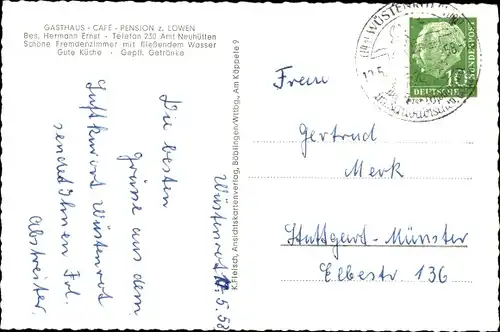 GASTHAUS - CAFÉ - PENSION z. LÖWEN
Bes. Hermann Ernst - Telefon 230 Amt Neuhütten
Schöne Fremdenzimmer mit fließendem Wasser
Gute Küche - Gepfl. Getränke
Wüstenrot, .5.58
Die besten
Grüsse aus dem
Luftkurort Wüstenrot
sendet Ihnen Frl.
Abstreiter.
K. Fleisch, Ansichtskartenverlag, Böblingen/Wttbg., Am Käppele 9
WÜSTENROT
10
DEUTSCHE
BUNDESPOST
Frau
Gertrud
Merk
Stuttgart-Münster
Elbestr 136